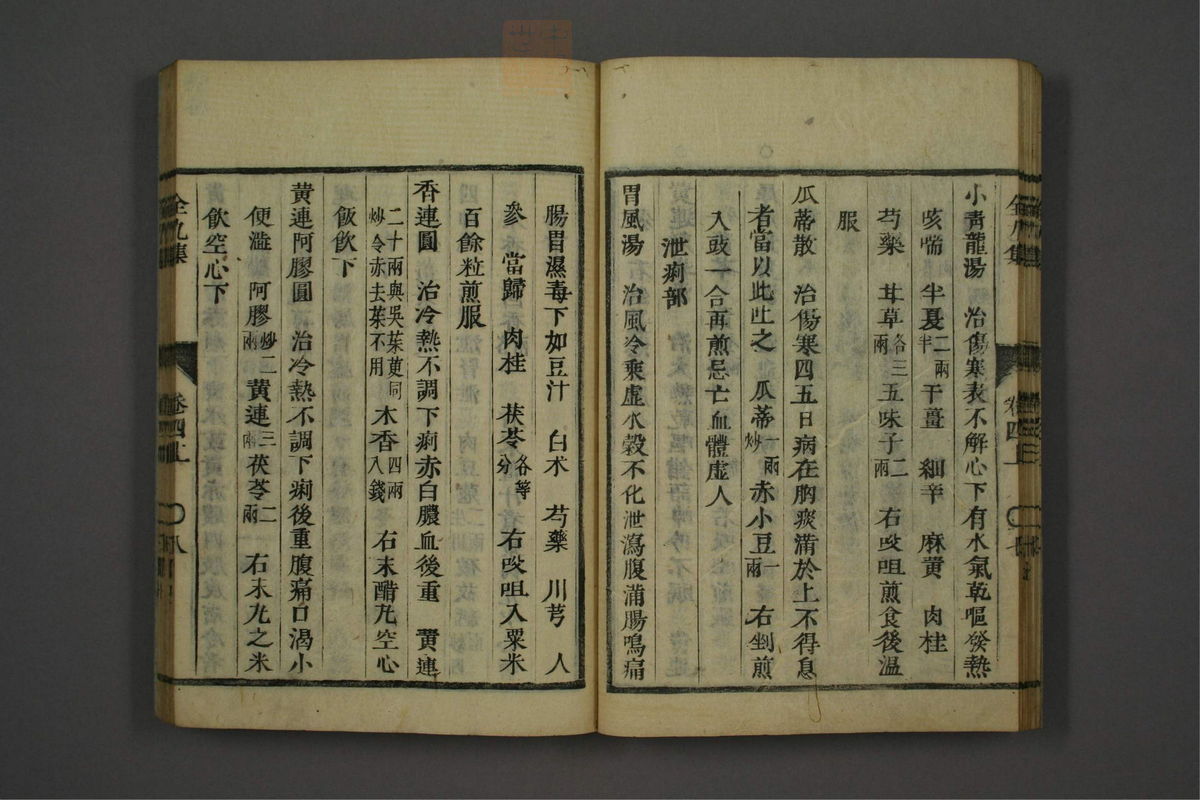 小青龍湯　治傷寒表不解心下有水氣乾嘔發熱
咳喘　半夏二兩半　干薑　細辛　麻黃　肉桂
芍藥　甘草各三兩　五味子二兩　右㕮咀煎食後溫
服
瓜蒂散　治傷寒四五日病在胸痰滿於上不得息
者當以此吐之　瓜蒂一兩炒　赤小豆一兩　右剉煎
入豉一合再煎忌亡血體虛人
泄痢部
胃風湯　治風冷乘虛水穀不化泄瀉腹滿腸鳴痛
腸胃濕毒下如豆汁　白术　芍藥　川芎　人
參　當歸　肉桂　茯苓各等分　右㕮咀入粟米
百餘粒煎服
香連圓　治冷熱不調下痢赤白膿血後重　黃連
二十兩與吳茱萸同炒令赤去茱不用　木香四兩八錢　右末醋丸空心
飯飲下
黃連阿膠圓　治冷熱不調下痢後重腹痛口渴小
便澁　阿膠炒二兩　黃連三兩　茯苓二兩　右末丸之米
飲空心下
全九集
卷四上
八